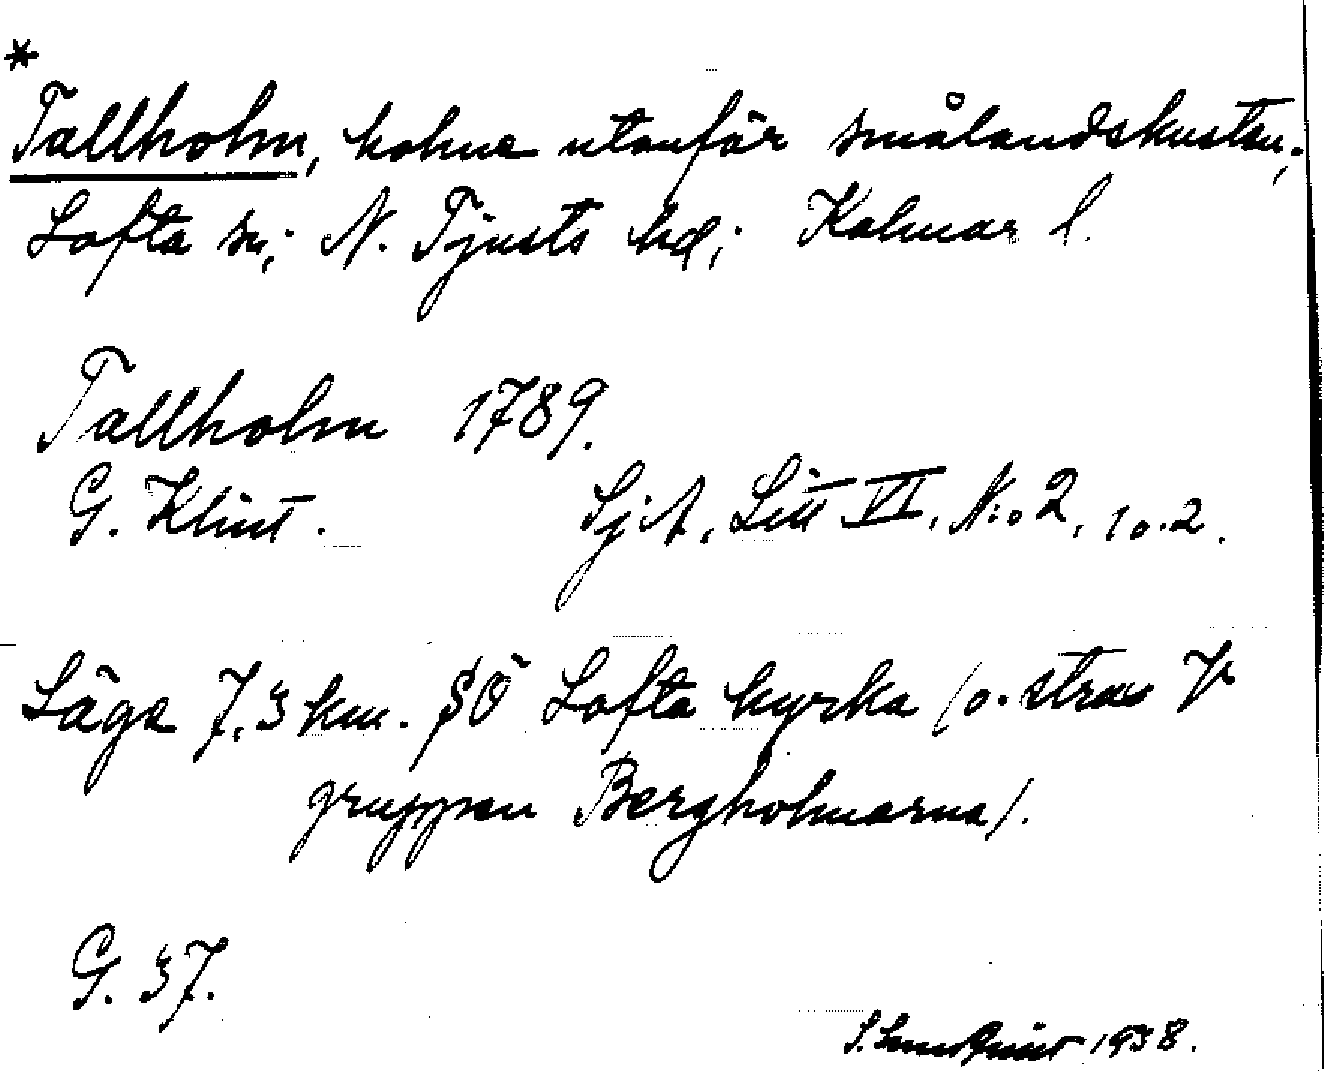 *
Tallholm, holme utanför smålandskusten;
Lofta sn; N. Tjusts hd; Kalmar l.
Tallholm 1789.
G. Klint. Sj.A, Litt VI, N:o 2, 1 o. 2.
Läge 7,3 km. SÖ Lofta kyrka (o. strax V
gruppen Bergholmarna).
G. 37.
1938.